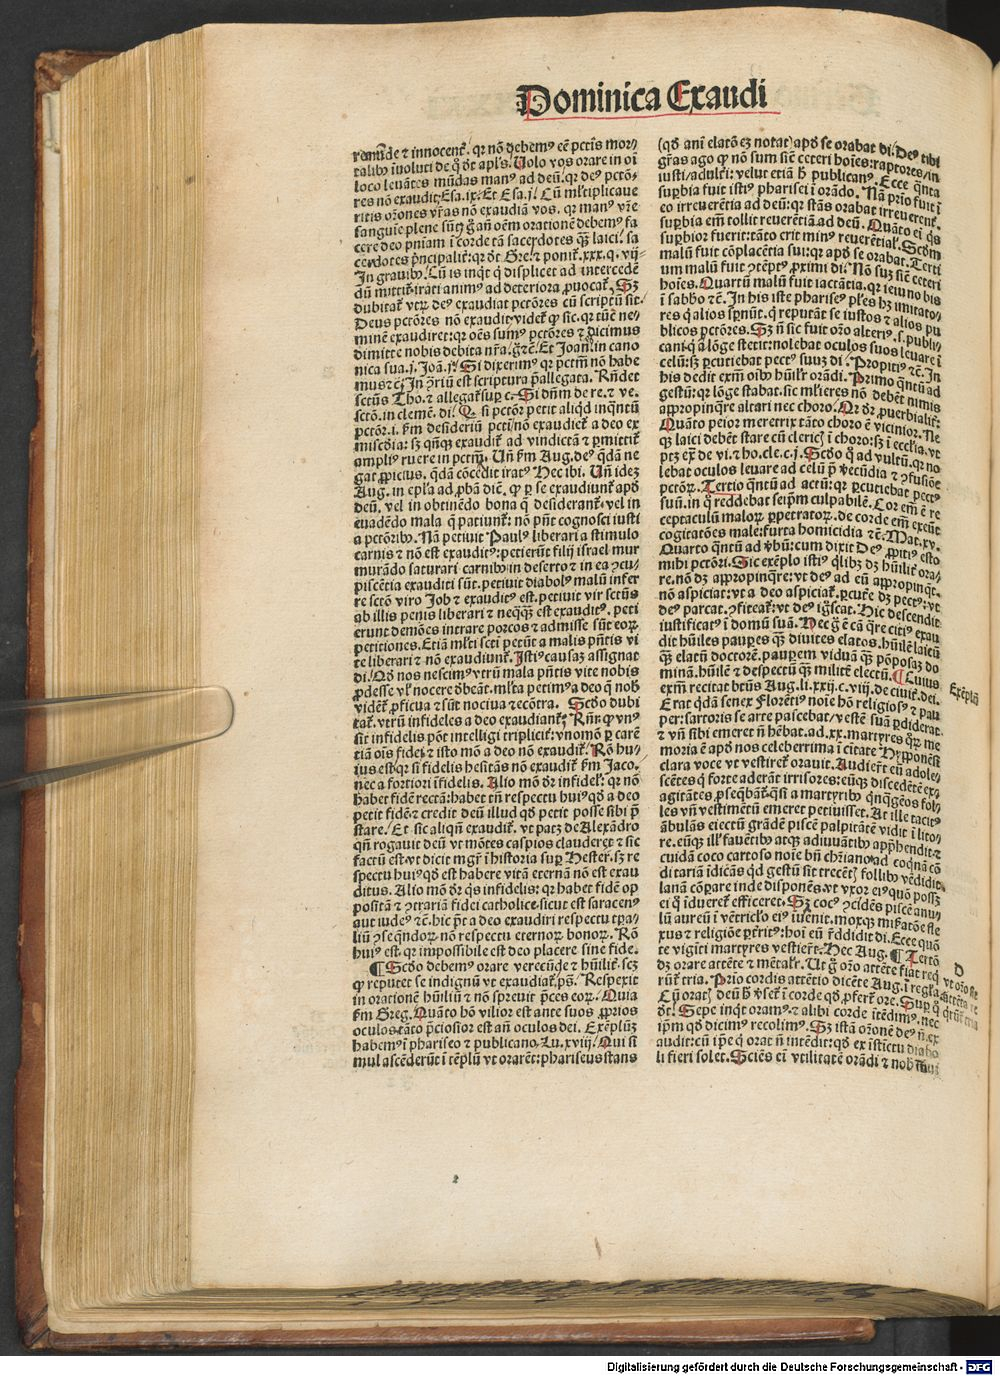 Dominica Exaudi
remũde ⁊ innocent᷑. qr nõ debemꝰ eẽ pctĩs mor/
talibꝰ ĩuoluti de q̃ dr apl's. Uolo vos orare in oĩ
loco leuãtes mũdas manꝰ ad deũ. qr deꝰ pctõ/
res nõ exaudit. Esa. ix. Et Esa. j. Cũ ml'tiplicaue
ritis orõnes vr̃as nõ exaudiã vos. qr manꝰ vr̃e
sanguĩe plene sũt. g̃ añ oẽm orationẽ debemꝰ fa
cere deo pnĩam ĩ corde tã sacerdotes qꝫ laici. sa
cerdotes pñcipalit᷑: qr dr Gre. ⁊ ponit᷑. xxx. q. vij
In grauibꝰ. Cũ is inqt q̃ displicet ad intercedẽ
dũ mittit᷑ irati animꝰ ad deteriora ꝓuocat᷑. Sꝫ
dubitat᷑ vtꝝ deꝰ exaudiat pctõres cũ scriptũ sit.
Deus pctõres nõ exaudit. videt᷑ ꝙ sic. qr tũc ne/
minẽ exaudiret: qr oẽs sumꝰ pctõres ⁊ dicimus
dimitte nobis debita nr̃a. ⁊c. Et Joañ. in cano
nica sua. j. Joã. j. Si dixerimꝰ qr pctm̃ nõ habe
musꝫ ⁊c. In ↄ̃riũ est scriptura p̃allegata. Rñdet
sctũs Tho. ⁊ allegat᷑ sup c. Si dñm de re. ⁊ ve.
sctõ. in clemẽ. di. Q. si pctõr petit aliqd inqntũ
pctõr. i. ẜm desideriũ pcti nõ exaudiet᷑ a deo ex
miscd̃ia: sꝫ qñqꝫ exaudit᷑ ad vindictã ⁊ ꝑmittit᷑
ampliꝰ ruere in pctm̃. Uñ ẜm Aug. deꝰ qdã ne
gat ꝓpicius. qdã cõcedit iratꝰ Hec ibi. Uñ idez
Aug. in epl'a ad ꝓbã dic̃. ꝙ ꝑ se exaudiunt᷑ apd
deũ. vel in obtinẽdo bona q̃ desiderant᷑. vel in
euadẽdo mala q̃ patiunt᷑: nõ pñt cognosci iusti
a pctõribꝰ. Nã petiuit Paulꝰ liberari a stimulo
carnis ⁊ nõ est exauditꝰ: petierũt filij israel mur
murãdo saturari carnibꝰ in deserto ⁊ in ea ↄcu/
piscẽtia exauditi sũt. petiuit diabolꝰ malũ infer
re sctõ viro Job ⁊ exauditꝰ est. petiuit vir sctũs
ab illis penis liberari ⁊ neqꝫ est exauditꝰ. peti
erunt demões intrare porcos ⁊ admisse sũt eoꝝ
petitiones. Etiã ml'ti scti petũt a malis pñtis vi
te liberari ⁊ nõ exaudiunt᷑. Isti causaꝫ assignat
di. Qd nos nescimꝰ vtrũ mala pñtis vite nobis
ꝓdesse vl' nocere dbeãt. ml'ta petimꝰ a deo q̃ nob
vident᷑ ꝓficua ⁊ sũt nociua ⁊ ecõtra. Scdo dubi
tat᷑. vtrũ infideles a deo exaudiant᷑. Rñr: ꝙ vnꝰ
sit infidelis põt intelligi triplicit᷑: vno mõ ꝑ carẽ
tiã oĩs fidei ⁊ isto mõ a deo nõ exaudit᷑. Rõ hu/
ius est. qr si fidelis hesitãs nõ exaudit᷑ ẜm Jaco.
nec a fortiori ĩfidelis. Alio mõ dr infidel': qr nõ
habet fidẽ rectã: habet tñ respectu huiꝰ qd a deo
petit fidẽ ⁊ credit deũ illud qd petit posse sibi p̃
stare. Et sic aliqñ exaudit᷑. vt patꝫ de Alexãdro
qñ rogauit deũ vt mõtes caspios clauderet ⁊ sic
factũ est. vt dicit mgr̃ ĩ historia sup Hester. sꝫ re
spectu huiꝰ qd est habere vitã eternã nõ est exau
ditus. Alio mõ dr qs infidelis: qr habet fidẽ op
positã ⁊ ↄtrariã fidei catholice. sicut est saracenꝰ
aut iudeꝰ ⁊c. hic p̃t a deo exaudiri respectu tꝑa/
liũ ↄseqndoꝝ nõ respectu eternoꝝ bonoꝝ. Rõ
huiꝰ est. qr impossibile est deo placere sine fide.
¶ Scdo debemꝰ orare verecũde ⁊ hũilit᷑. scꝫ
ꝙ reputet se indignũ vt exaudiat᷑. pš. Respexit
in orationẽ hũiliũ ⁊ nõ spreuit p̃ces eoꝝ. Quia
ẜm Greg. Quãto hõ vilior est ante suos ꝓprios
oculos: tãto p̃ciosior est añ oculos dei. Exẽplũꝫ
habemꝰ ĩ phariseo ⁊ publicano. Lu. xviij. Qui si
mul ascẽderũt ĩ tẽplũ vt orarẽt: phariseus stans
(qd anĩ elatõeꝫ notat) apd se orabat di. Deꝰ tibi
gr̃as ago ꝙ nõ sum sic̃ ceteri hoĩes: raptores/in
iusti/adult'i: velut etiã h̃ publicanꝰ. Ecce qnta
supbia fuit istiꝰ pharisei ĩ orãdo. Nã prĩo fuit ĩ
eo irreuerẽtia ad deũ: qr stãs orabat irreuerent᷑.
supbia em̃ tollit reuerẽtiã ad deũ. Quãto em̃ qs
supbior fuerit: tãto erit minꝰ reuerẽtial'. Scdm
malũ fuit cõplacẽtia sui: qr apd se orabat. Terti
um malũ fuit ↄtẽptꝰ ꝓximi di. Nõ suꝫ sic̃ ceteri
hoĩes. Quartũ malũ fuit iactãtia. qr ieiuno bis
ĩ sabbo ⁊c. In his iste phariseꝰ pl'es hꝫ imitato/
res q̃ alios spnũt. q̃ reputãt se iustos ⁊ alios pu
blicos pctõres. Sꝫ ñ sic fuit orõ alteriꝰ. s. publi/
cani. q̃ a lõge stetit: nolebat oculos suos leuare ĩ
celũ: sꝫ ꝑcutiebat pectꝰ suuꝫ di. Propitiꝰ ⁊c. In
his dedit exm̃ oĩbꝰ hũil'r orãdi. Primo qntũ ad
gestũ: qr lõge stabat. sic ml'ieres nõ debẽt nimis
appropinqre altari nec choro. Qr dr ꝓuerbialit᷑:
Quãto peior meretrix tãto choro ẽ vicinior. Ne
qꝫ laici debẽt stare cũ cleric̃ ĩ choro: sꝫ ĩ eccl'ia. vt
ptꝫ ex̃ de vi. ⁊ ho. cle. c. j. Scdo q̃ ad vultũ. qr no
lebat oculos leuare ad celũ p̃ vecũdia ⁊ ↄfusiõe
pctoꝝ. Tertio qntũ ad actũ: qr ꝑcutiebat pectꝰ
suũ. in q̃ reddebat seipm̃ culpabilẽ. Cor em̃ ẽ re
ceptaculũ maloꝝ ꝑpetratoꝝ. de corde em̃ exeũt
cogitatões male: furta homicidia ⁊c. Mat. xv.
Quarto qntũ ad vbũ: cum dixit Deꝰ ꝓpitiꝰ esto
mihi pctõri. Sic exẽplo isti qlibꝫ dꝫ hũilit᷑ ora/
re. nõ dꝫ appropinqre: vt deꝰ ad eũ appropinqt.
nõ aspiciat: vt a deo aspiciat᷑. ꝑcut̃e dꝫ pectꝰ: vt
deꝰ parcat. ↄfiteat᷑: vt deꝰ ignscat. Hic descendit
iustificatꝰ ĩ domũ suã. Hec g̃ ẽ cã qre citiꝰ exau
dit hũiles paupes qꝫ diuites elatos. hũilẽ laicũ
qꝫ elatũ doctorẽ. paupem viduã qꝫ põposaꝫ do
minã. hũilẽ ⁊ despectũ qꝫ militẽ electũ. ¶ Cuius
exm̃ recitat btũs Aug. li. xxij. c. viij. de ciuit᷑. dei.
Erat qdã senex Florẽtiꝰ noĩe hõ religiosꝰ ⁊ pau
per: sartoris se arte pascebat/vestẽ suã ꝑdiderat
⁊ vñ sibi emeret ñ hẽbat. ad. xx. martyres qꝝ me
moria ẽ apd nos celeberrima ĩ citate Hypponẽsi
clara voce vt vestiret᷑ orauit. Audierũt eũ adole/
scẽtes q̃ forte aderãt irrisores: eũqꝫ discedẽtẽ ex
agitãtes ꝓseqbãt᷑. qsi a martyribꝰ qnqgẽos fol/
les vñ vestimẽtũ emeret petiuisset. At ille tacitꝰ
ãbulãs eiectũ grãdẽ piscẽ palpitãtẽ vidit ĩ lito/
re. eũqꝫ ill' fauẽtibꝰ atqꝫ adiuuãtibꝰ apphendit ⁊
cuidã coco cartoso noĩe bñ chr̃iano ad coqnã cõ
ditariã ĩdicãs qd gestũ sit trecẽt̃ follibꝰ vẽdidit.
lanã cõparare inde disponẽs. vt vxor eiꝰ quo possꝫ
ei q̃ ĩduerẽt᷑ efficeret. Sꝫ cocꝰ ↄcidẽs piscẽ anu/
lũ aureũ ĩ vẽtriclo eiꝰ iuenit. moxqꝫ mis̃atõe fle
xus ⁊ religiõe ꝑt'ritꝰ: hoi eũ reddidit di. Ecce quõ
te vigĩti martyres vestierũt. Hec Aug. ¶ Tertõ
dꝫ orare attẽte ⁊ mẽtal'r. Ut g̃ orõ attẽte fiat req
rũt᷑ tria. Prĩo cordis attẽtio dicẽte Aug. ĩ regl'a
Cũ orat̃ deũ h̃ vset᷑ ĩ corde qd ꝓfert᷑ ore. Sup q̃
dr: Sepe inqt oramꝰ. ⁊ alibi corde itẽdimꝰ, nec
ipm̃ qd dicimꝰ recolimꝰ. Sꝫ istã orõnẽ deꝰ ñ ex
audit: cũ ip̃e q̃ orat ñ intẽdit: qd ex ĩstĩctu diabo
li fieri solet. Sciẽs em̃ vtilitatẽ orãdi ⁊ nob
Exẽplũ
D